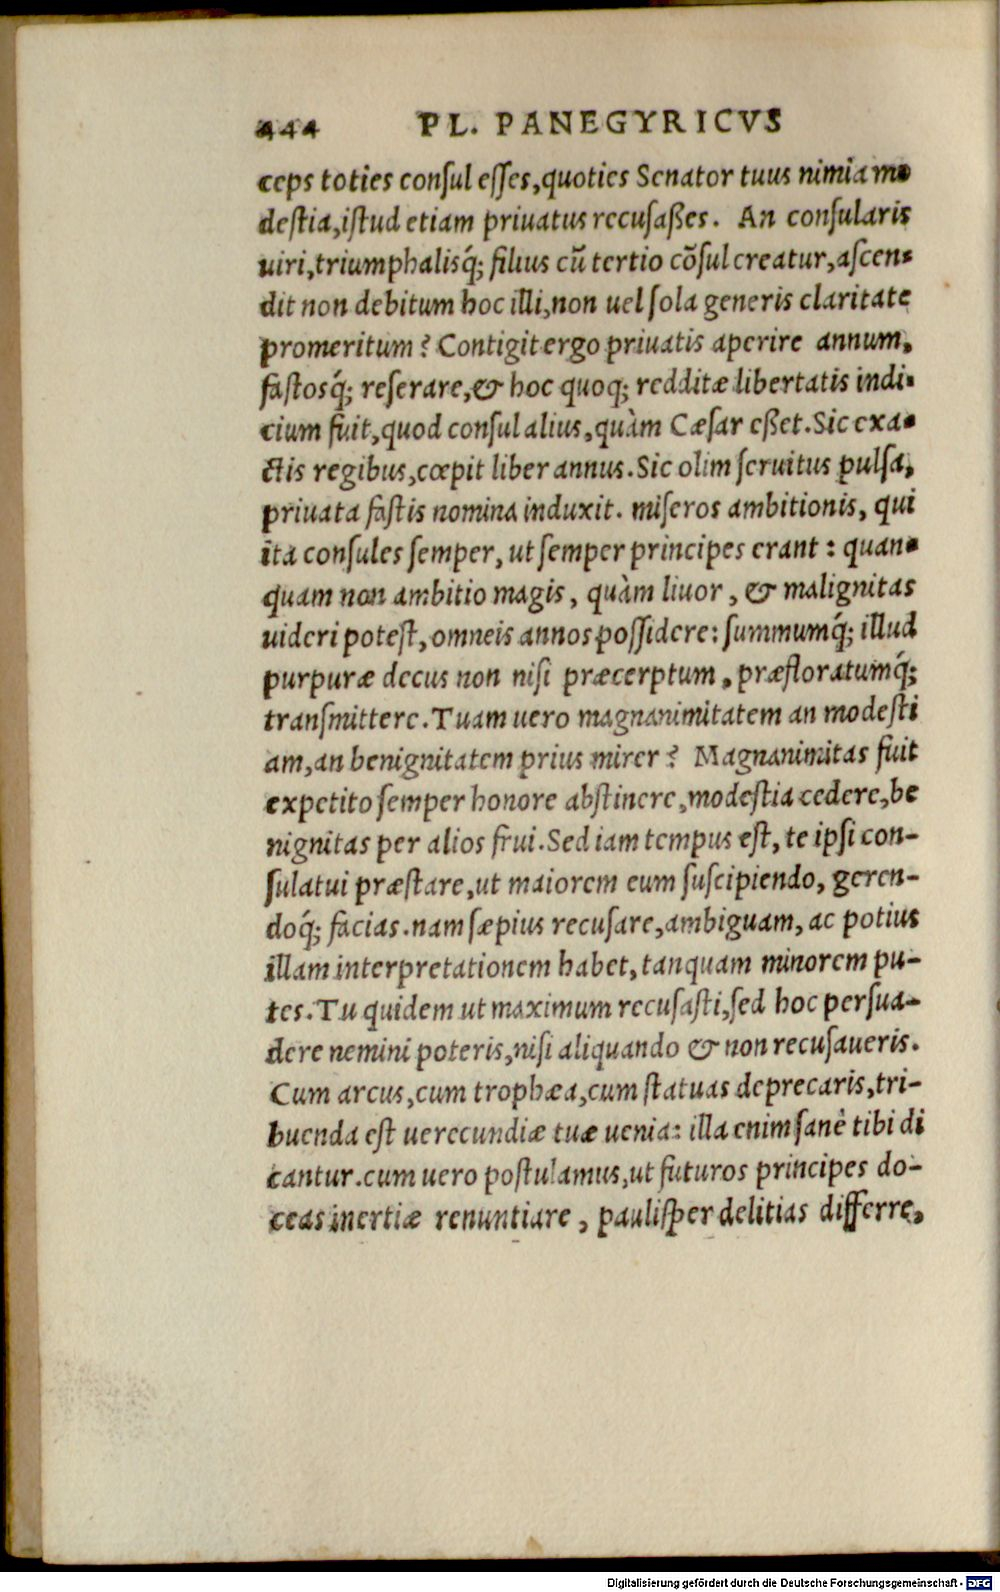 444 PL. PANEGYRICVS
ceps toties conſul eſſes, quoties Senator tuus nimia mo
deſtia, iſtud etiam priuatus recuſaßes. An conſularis
uiri, triumphalisq́; filius cũ tertio cõſul creatur, aſcen-
dit non debitum hoc illi, non uel ſola generis claritate
promeritum? Contigit ergo priuatis aperire annum,
faſtosq́; reſerare, & hoc quoq; redditæ libertatis indi-
cium fuit, quod conſul alius, quàm Cæſar eßet. Sic exa-
ctis regibus, cœpit liber annus. Sic olim ſeruitus pulſa,
priuata faſtis nomina induxit. miſeros ambitionis, qui
ita conſules ſemper, ut ſemper principes erant: quan-
quam non ambitio magis, quàm liuor, & malignitas
uideri poteſt, omneis annos poſſidere: ſummumq́; illud
purpuræ decus non niſi præcerptum, præfloratumq́;
tranſmittere. Tuam uero magnanimitatem an modeſti
am, an benignitatem prius mirer? Magnanimitas fuit
expetito ſemper honore abſtinere, modeſtia cedere, be
nignitas per alios frui. Sed iam tempus eſt, te ipſi con-
ſulatui præſtare, ut maiorem eum ſuſcipiendo, geren-
doq́; facias. nam ſæpius recuſare, ambiguam, ac potius
illam interpretationem habet, tanquam minorem pu-
tes. Tu quidem ut maximum recuſaſti, ſed hoc perſua-
dere nemini poteris, niſi aliquando & non recuſaueris.
Cum arcus, cum trophæa, cum ſtatuas deprecaris, tri-
buenda eſt uerecundiæ tuæ uenia: illa enim ſanè tibi di
cantur. cum uero poſtulamus, ut futuros principes do-
ceas inertiæ renuntiare, pauliſper delitias differre,
Digitalisierung gefördert durch die Deutsche Forschungsgemeinschaft - DFG